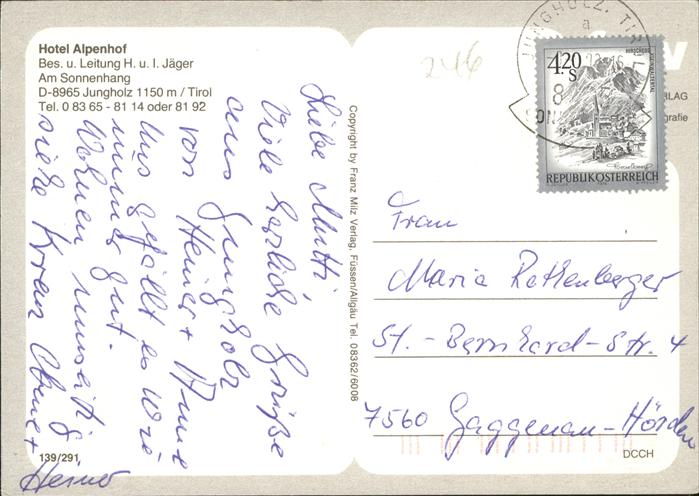 Hotel Alpenhof
Bes. u. Leitung H. u. I. Jäger
Am Sonnenhang
D-8965 Jungholz 1150 m / Tirol
Tel. 0 83 65 - 81 14 oder 81 92
Liebe Mutti,
Viele herzliche Grüße
aus Jungholz
von Heiner + Anne
Uns gefällt es wie
immer gut.
Wohnen
siehe
Heiner
139/291
Copyright by Franz Milz Verlag, Füssen/Allgäu Tel. 08362/6008
246
JUNGHOLZ, TIROL
a
4.20
S
REPUBLIK ÖSTERREICH
Frau
Maria Rothenberger
St.-Bernhard-Str. 4
7560 Gaggenau-Hörden
DCCH